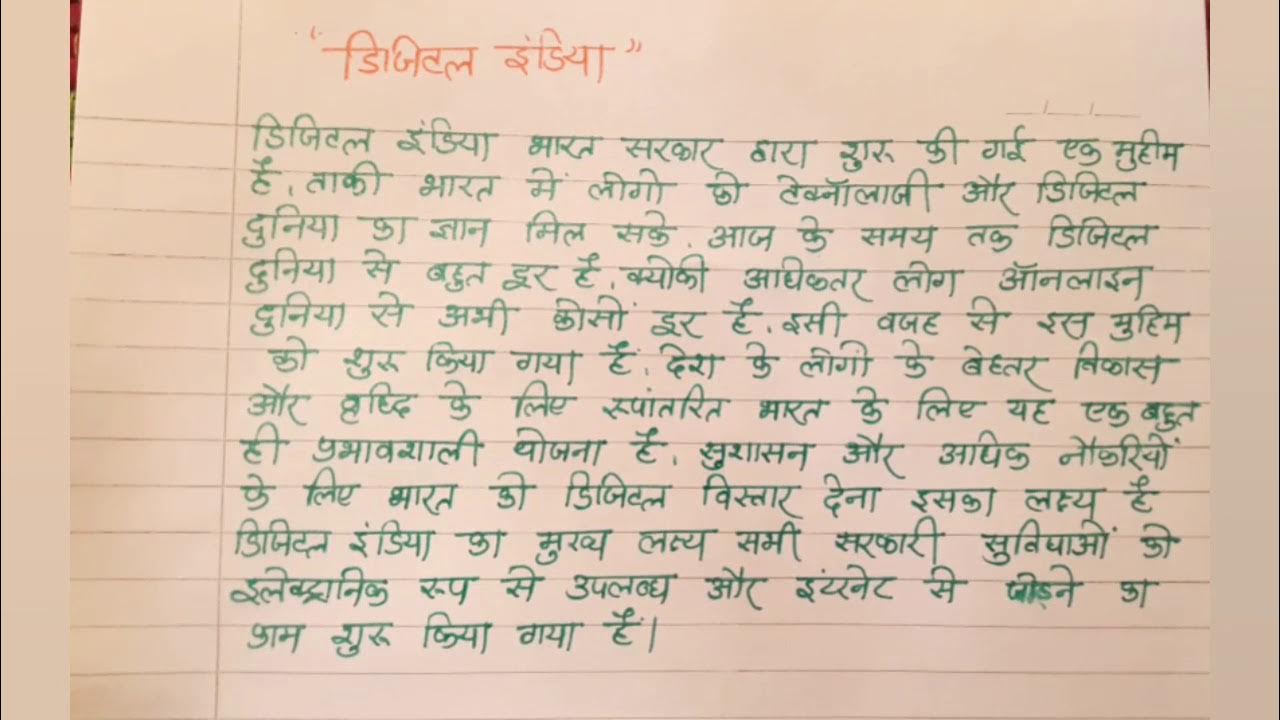 "डिजिटल इंडिया"
डिजिटल इंडिया भारत सरकार द्वारा शुरू की गई एक मुहीम
है. ताकी भारत में लोगो को टेक्नॉलाजी और डिजिटल
दुनिया का ज्ञान मिल सके. आज के समय तक डिजिटल
दुनिया से बहुत दूर है. क्योकी अधिकतर लोग ऑनलाइन
दुनिया से अभी कोसों दूर है. इसी वजह से इस मुहिम
को शुरू किया गया है. देश के लोगों के बेहतर विकास
और वृध्दि के लिए रूपांतरित भारत के लिए यह एक बहुत
ही प्रभावशाली योजना है. सुशासन और अधिक नौकरियों
के लिए भारत को डिजिटल विस्तार देना इसका लक्ष्य है
डिजिटल इंडिया का मुख्य लक्ष्य सभी सरकारी सुविधाओं को
इलेक्ट्रानिक रूप से उपलब्ध और इंटरनेट से जोड़ने का
काम शुरू किया गया है।